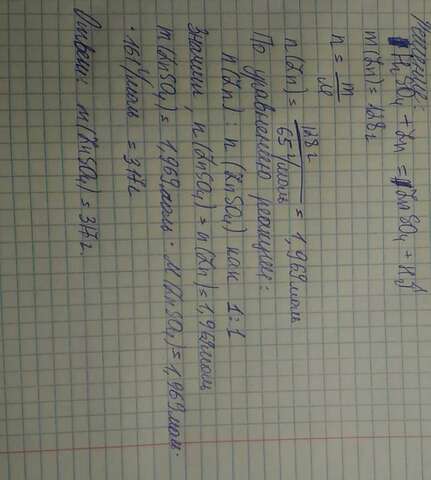 Решение:
H₂SO₄ + Zn = ZnSO₄ + H₂↑
m(Zn) = 128 г
n = m/M
n(Zn) = 128 г / 65 г/моль = 1,969 моль
По уравнению реакции:
n(Zn) : n(ZnSO₄) как 1:1
Значит, n(ZnSO₄) = n(Zn) = 1,969 моль
m(ZnSO₄) = 1,969 моль · M(ZnSO₄) = 1,969 моль ·
· 161 г/моль = 317 г
Ответ: m(ZnSO₄) = 317 г.